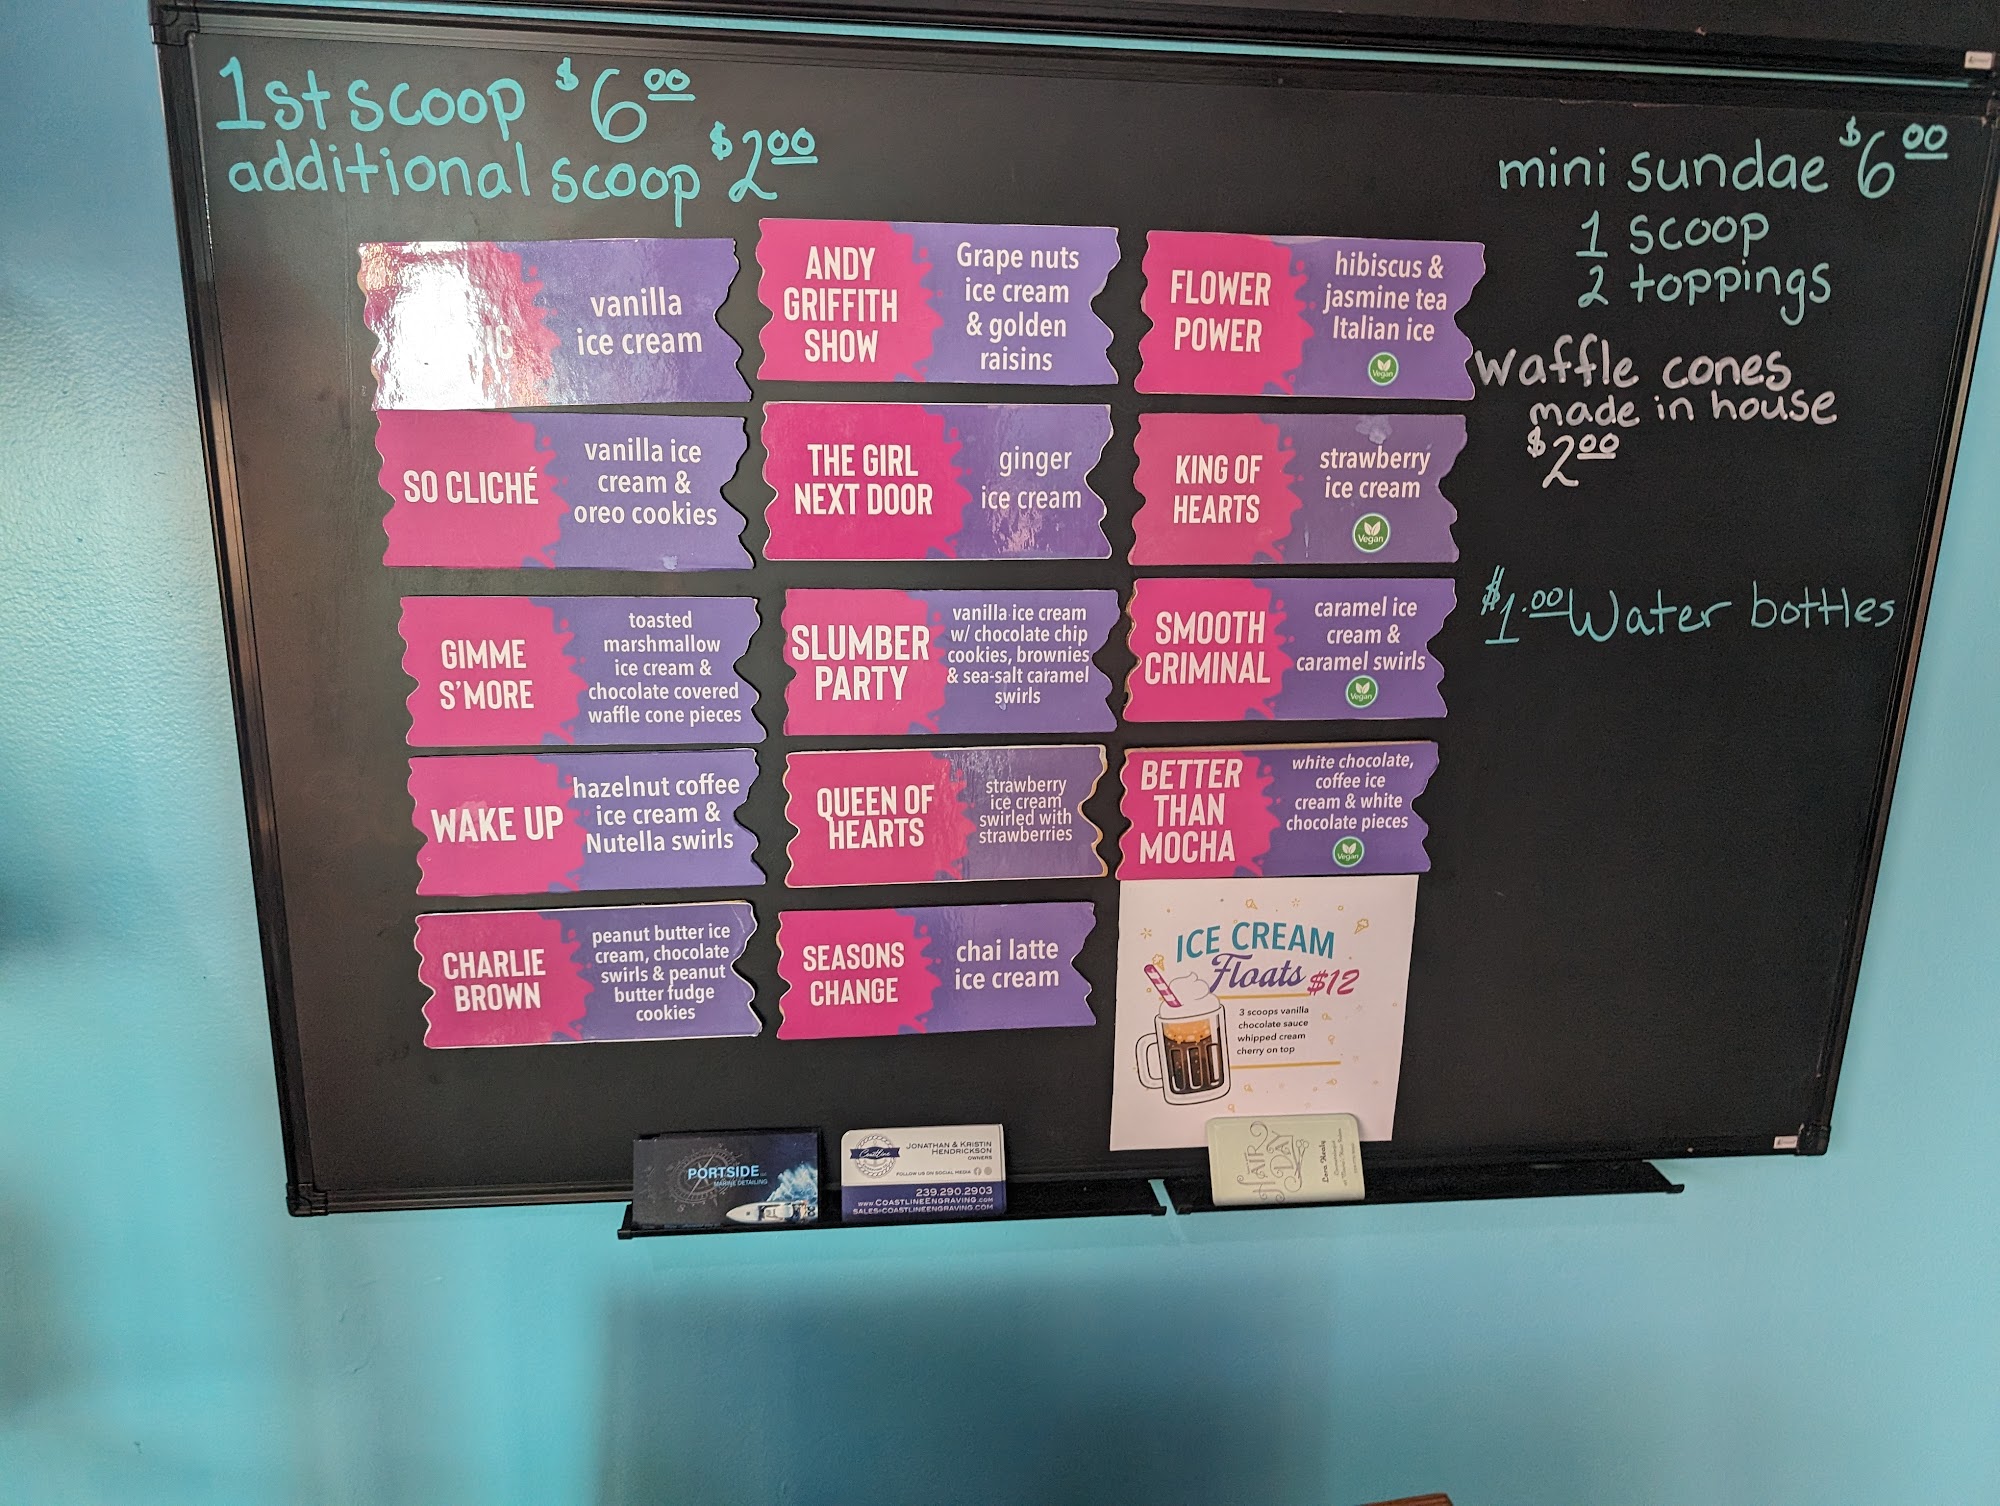 1st scoop $6.00
additional scoop $2.00
vanilla
ice cream
SO CLICHÉ
vanilla ice
cream &
oreo cookies
GIMME
S'MORE
toasted
marshmallow
ice cream &
chocolate covered
waffle cone pieces
WAKE UP
hazelnut coffee
ice cream &
Nutella swirls
CHARLIE
BROWN
peanut butter ice
cream, chocolate
swirls & peanut
butter fudge
cookies
ANDY
GRIFFITH
SHOW
Grape nuts
ice cream
& golden
raisins
THE GIRL
NEXT DOOR
ginger
ice cream
SLUMBER
PARTY
vanilla ice cream
w/ chocolate chip
cookies, brownies
& sea-salt caramel
swirls
QUEEN OF
HEARTS
strawberry
ice cream
swirled with
strawberries
SEASONS
CHANGE
chai latte
ice cream
FLOWER
POWER
hibiscus &
jasmine tea
Italian ice
Vegan
KING OF
HEARTS
strawberry
ice cream
Vegan
SMOOTH
CRIMINAL
caramel ice
cream &
caramel swirls
Vegan
BETTER
THAN
MOCHA
white chocolate,
coffee ice
cream & white
chocolate pieces
Vegan
ICE CREAM
Floats $12
3 scoops vanilla
chocolate sauce
whipped cream
cherry on top
mini sundae $6.00
1 scoop
2 toppings
waffle cones
made in house
$2.00
$1.00 Water bottles
PORTSIDE
MARINE DETAILING
CoastLine
JONATHAN & KRISTIN
HENDRICKSON
OWNERS
FOLLOW US ON SOCIAL MEDIA
239.290.2903
WWW.COASTLINEENGRAVING.COM
SALES@COASTLINEENGRAVING.COM
HAIR
DAY
Lora Healy